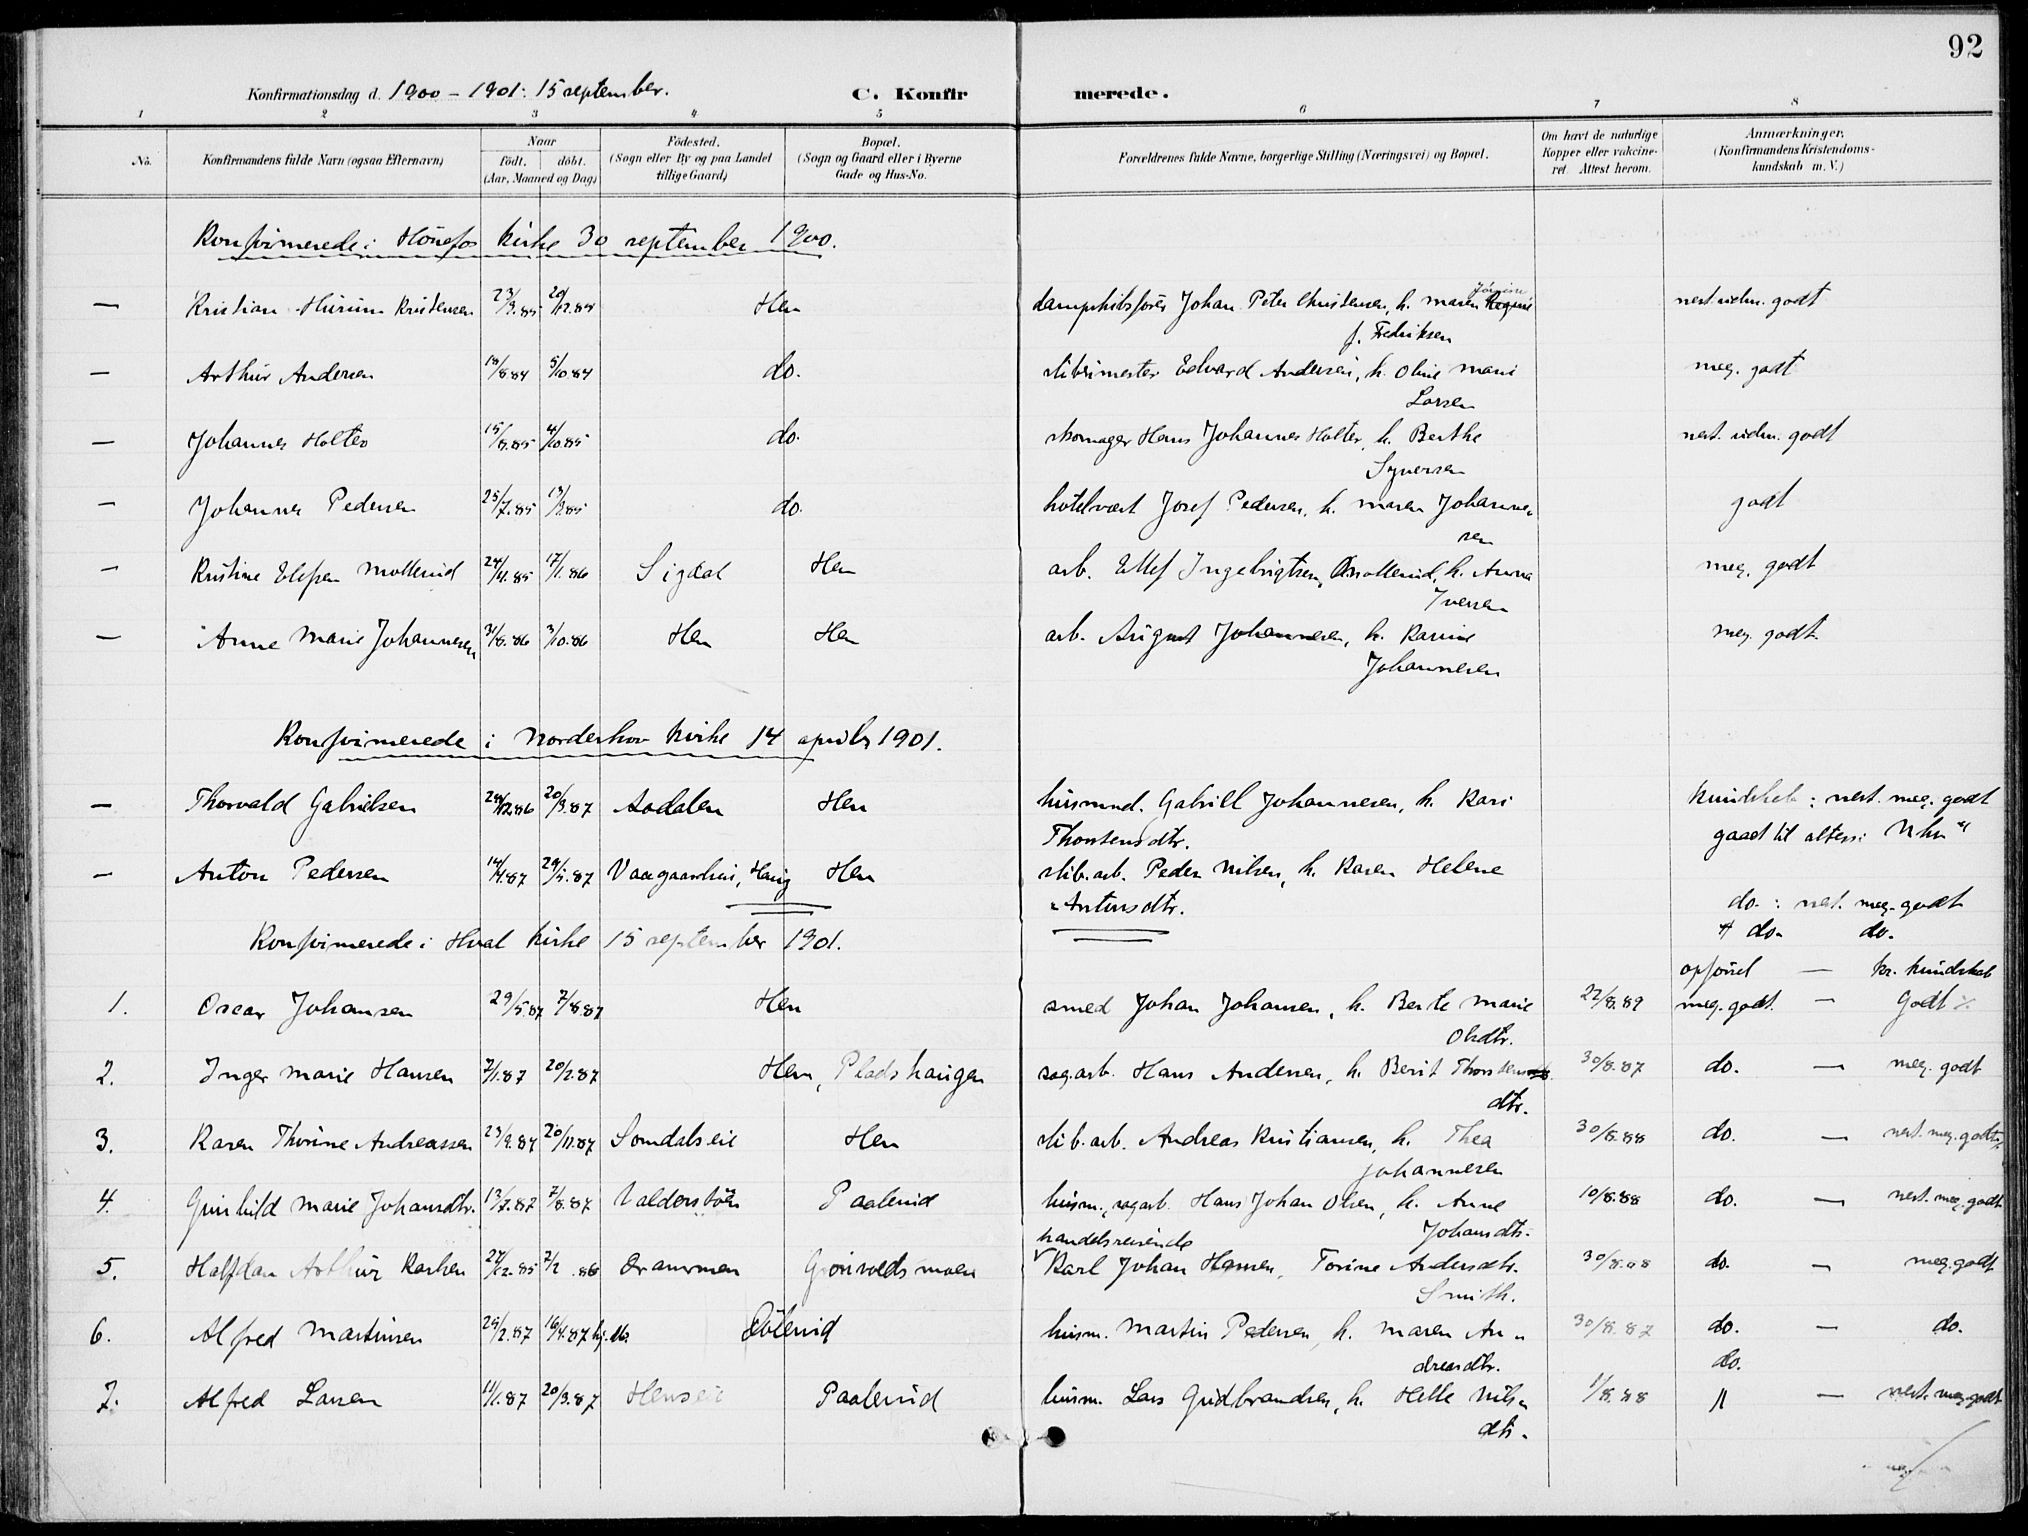 92
Konfirmationsdag d. 1900 - 1901: 15 september. C. Konfirmerede.
1 2 3 4 5 6 7 8
No. Konfirmandens fulde Navn (ogsaa Efternavn) Naar født. døbt. (Aar, Maaned og Dag) Fødested. (Sogn eller By og paa Landet tillige Gaard) Bopæl. (Sogn og Gaard eller i Byerne Gade og Hus-No. Forældrenes fulde Navne, borgerlige Stilling (Næringsvei) og Bopæl. Om havt de naturlige Kopper eller vakcineret. Attest herom. Anmærkninger. (Konfirmandens Kristendomskundskab m. V.)
Konfirmerede i Hönefos kirke 30 september 1900.
— Kristian Hurum Kristensen 23/9.85 20/12.85 Hen dampskibsförer Johan Peter Christensen, h. Maren Jörgine nest. udm. godt
f. Fredriksen
— Arthur Andersen 13/8.84 5/10.84 do. slibrimester Edvard Andersen, h. Oline Marie meg. godt
Larsen
— Johannes Holter 15/8.85 4/10.85 do. skomager Hans Johannes Holter, h. Berthe nest. udm. godt
Syversen
— Johannes Pedersen 25/7.85 13/9.85 do. hotelvært Josef Pedersen, h. Maren Johannesen godt
— Kristine Elefsen Mollerud 24/11.85 17/1.86 Sigdal Hen arb. Ellef Ingebrigtsen Mollerud, h. Anna meg. godt
Iversen
— Anne Marie Johannesen 31/8.86 3/10.86 Hen Hen arb. August Johannesen, h. Karine meg. godt.
Johannesen
Konfirmerede i Norderhov kirke 14 april 1901.
— Thorvald Gabrielsen 24/12.86 20/3.87 Aadalen Hen husmnd. Gabriel Johannesen, h. Kari Kundskab: nest. meg. godt
Thorstensdtr. gaaet til alters: Nhv
— Anton Pedersen 14/4.87 29/5.87 Vaagaardeie, Haug Hen slib.arb. Peder Nilsen, h. Karen Helene
Antonsdtr. do. : nest. meg. godt
Konfirmerede i Hval kirke 15 september 1901. do. do.
opførsel — kr. kundskab
1. Oscar Johansen 29/5.87 7/8.87 Hen smed Johan Johansen, h. Berte Marie 22/8.89 meg. godt. — Godt
Olsdtr.
2. Inger Marie Hansen 2/1.87 20/2.87 Hen, Pladshaugen sagarb. Hans Andersen, h. Berit Thorstens 30/8.87 do. — meg. godt
dtr.
3. Karen Thorine Andreassen 23/9.87 20/11.87 Somdalseie Hen slib.arb. Andreas Kristiansen, h. Thea 30/8.88 do. — nest. meg. godt
Johannesen
4. Gunhild Marie Johansdtr. 13/7.87 7/8.87 Valdersböen Paalerud husm., sagarb. Hans Johan Olsen, h. Anne 10/8.88 do. — nest. meg. godt
Johansdtr.
handelsreisende
5. Halfdan Arthur Karlsen 27/12.85 7/2.86 Drammen Grönvoldsmoen Karl Johan Hansen, Torine Andersdtr. 30/8.88 do. — meg. godt
Smith.
6. Alfred Martinsen 29/2.87 16/4.87 hj.db. Dölerud husm. Martin Pedersen, h. Maren An- 30/8.87 do. — do.
dreasdtr. do.
7. Alfred Larsen 11/1.87 20/3.87 Henseie Paalerud husm. Lars Gudbrandsen, h. Helle Nils- 1/8.88 " — nest. meg. godt
dtr.